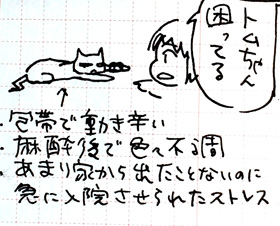 トムちゃん
困ってる
・包帯で動き辛い
・麻酔後で色々不調
・あまり家から出たことないのに
急に入院させられたストレス